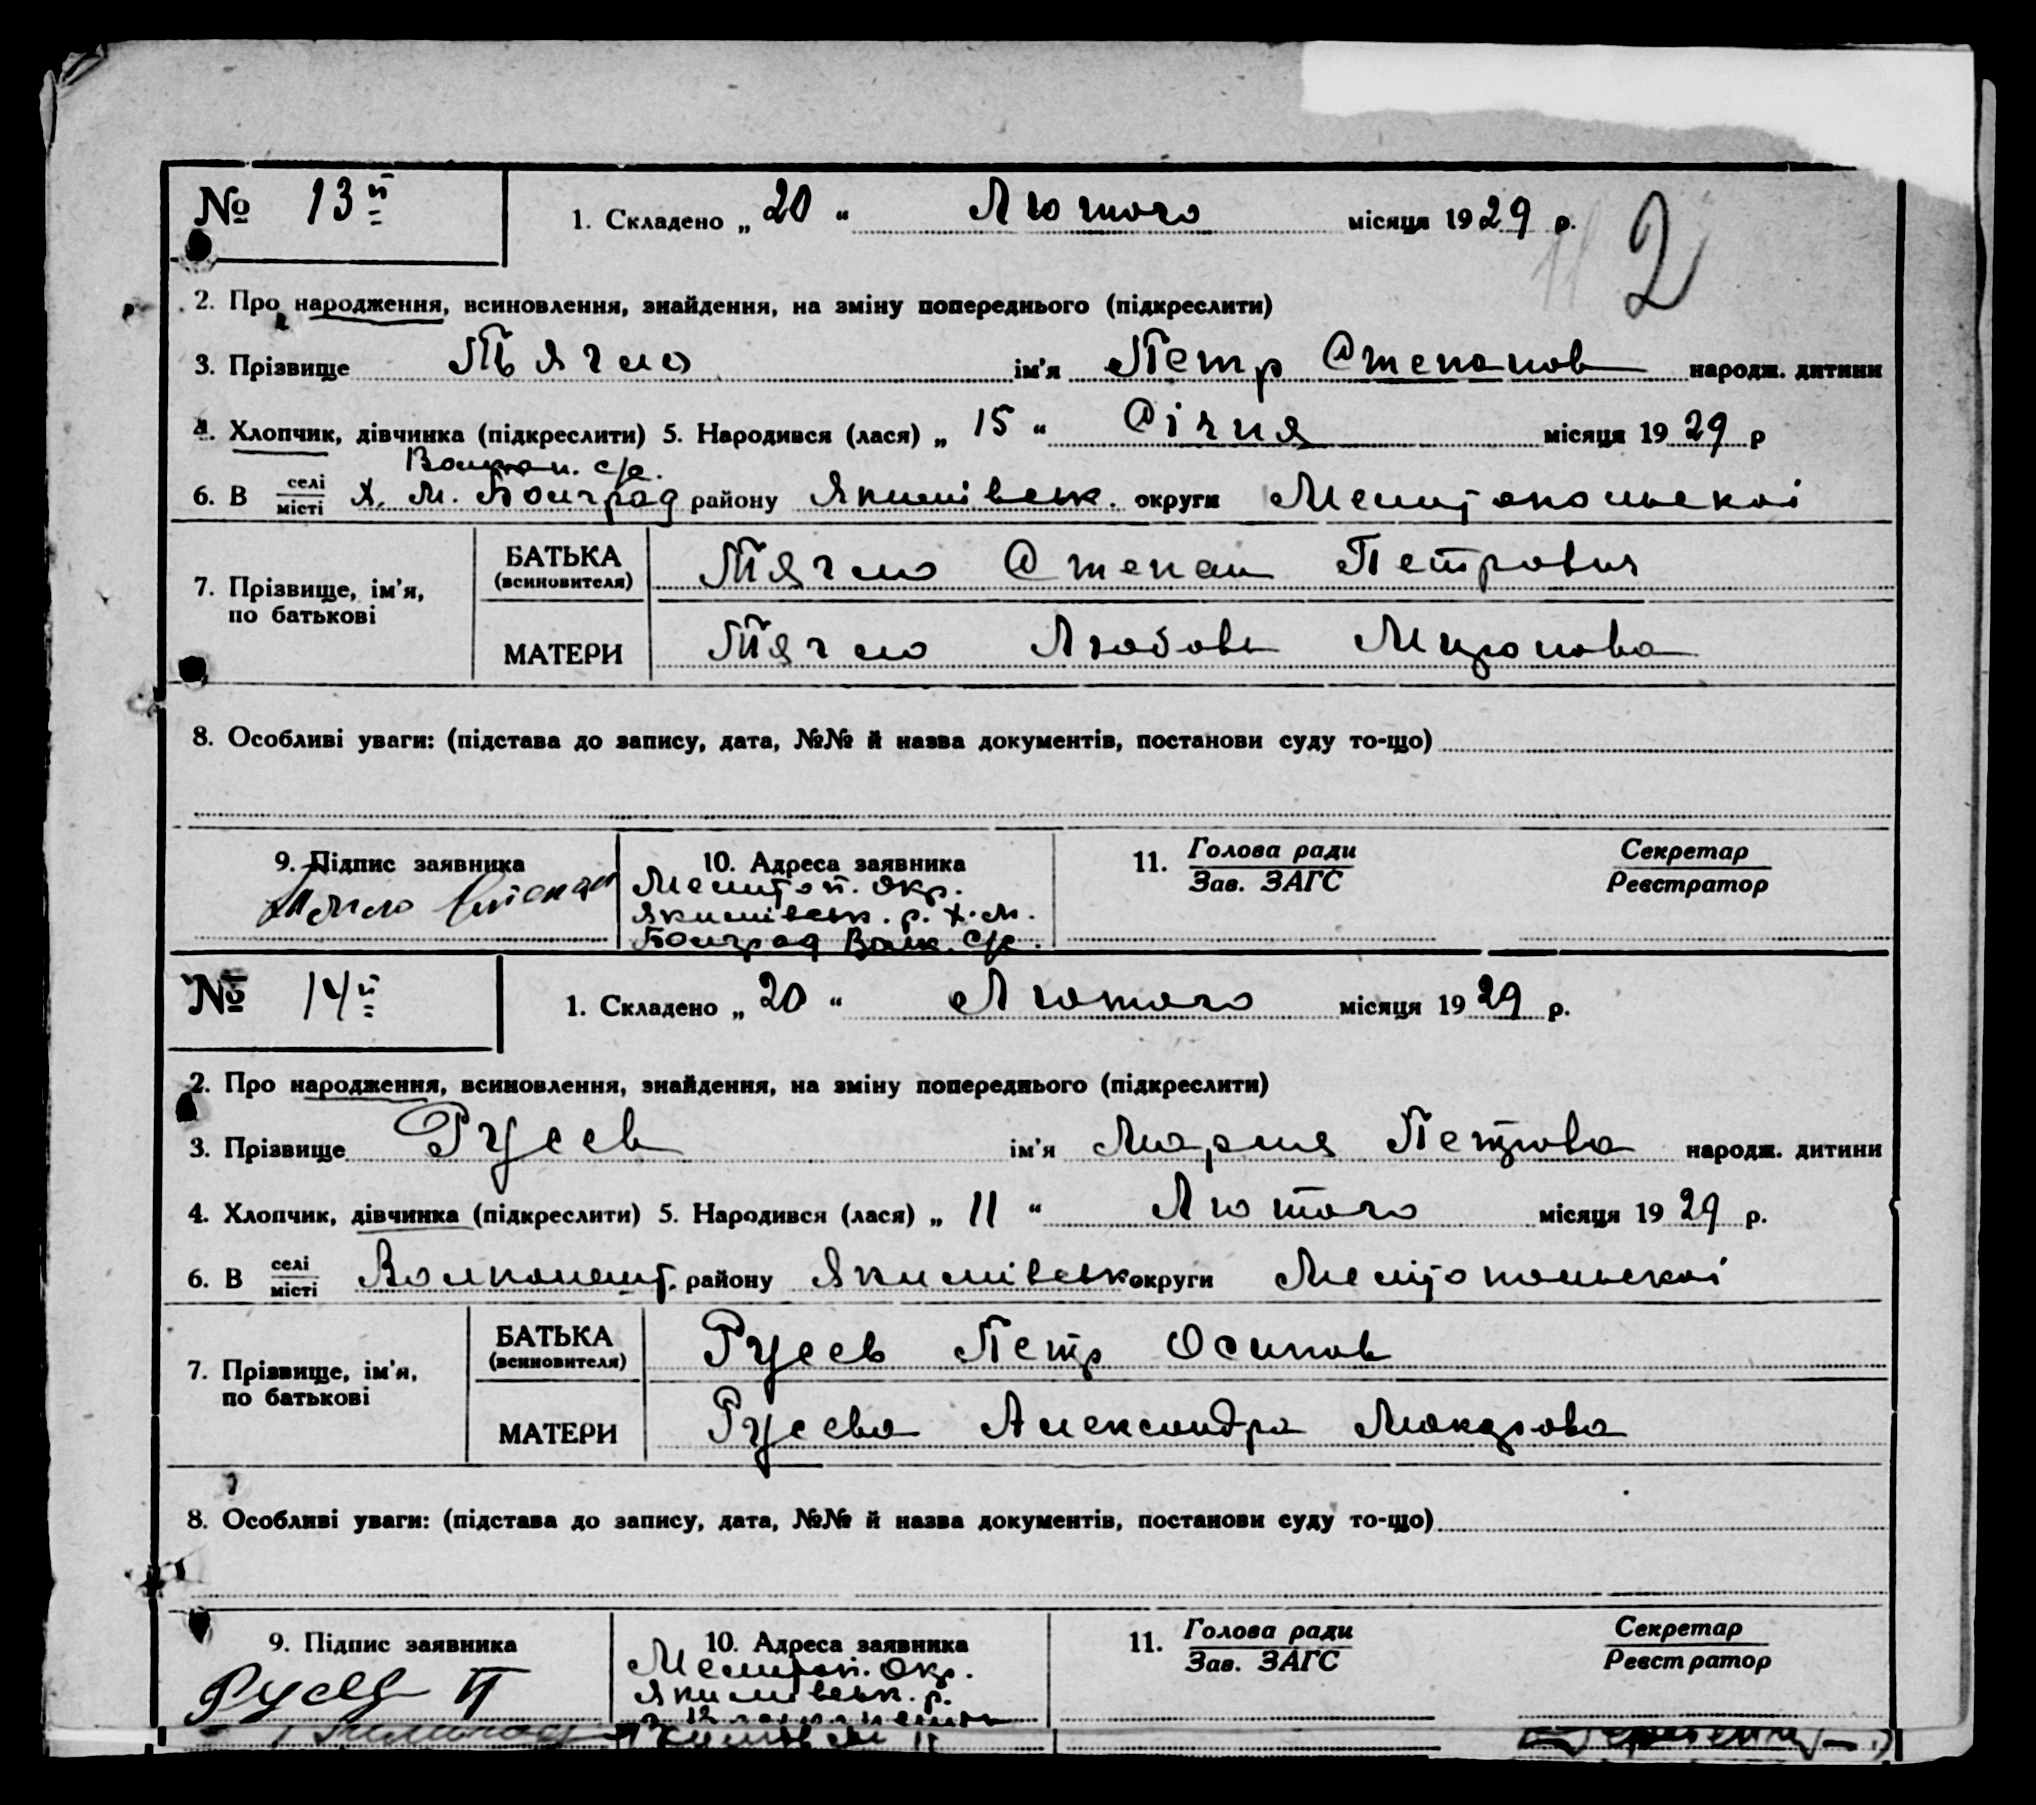 № 13й
1. Складено „ 20 “ Лютого місяця 1929 р.
2
2. Про народження, всиновлення, знайдення, на зміну попереднього (підкреслити)
3. Прізвище Тягло ім'я Петр Степанов народж. дитини
4. Хлопчик, дівчинка (підкреслити) 5. Народився (лася) „ 15 “ Січня місяця 1929 р
Волкон. с/р.
6. В селі/місті х. М. Болград району Якимівськ. округи Мелітопольскоі
7. Прізвище, ім'я, по батькові
БАТЬКА (всиновителя) Тягло Степан Петрович
МАТЕРИ Тягло Любовь Миронова
8. Особливі уваги: (підстава до запису, дата, №№ й назва документів, постанови суду то-що)
9. Підпис заявника
Тягло Степан
10. Адреса заявника
Мелітоп. окр.
Якимівськ. р. х. М.
Болград Волк. с/р.
11. Голова ради
Зав. ЗАГС
Секретар
Реєстратор
№ 14й
1. Складено „ 20 “ Лютого місяця 1929 р.
2. Про народження, всиновлення, знайдення, на зміну попереднього (підкреслити)
3. Прізвище Русев ім'я Мария Петрова народж. дитини
4. Хлопчик, дівчинка (підкреслити) 5. Народився (лася) „ 11 “ Лютого місяця 1929 р.
6. В селі/місті Волконешт. району Якимівськ округи Мелітопольскоі
7. Прізвище, ім'я, по батькові
БАТЬКА (всиновителя) Русев Петр Осипов
МАТЕРИ Русева Александра Макарова
8. Особливі уваги: (підстава до запису, дата, №№ й назва документів, постанови суду то-що)
9. Підпис заявника
Русев П
10. Адреса заявника
Мелітоп. окр.
Якимівськ. р.
11. Голова ради
Зав. ЗАГС
Секретар
Реєстратор